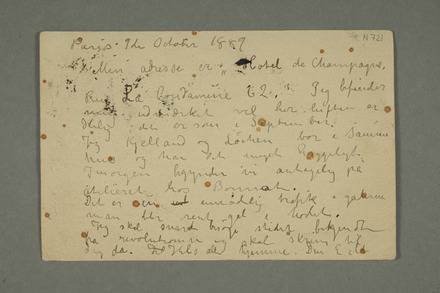 Paris 9de October 1889
N 721
Min adresse er „Hotel de Champagne,
Rue La Condamine 62." Jeg befinder
mig udmærket vel her luften er
deilig, den er som i September.
Jeg Kjelland og Lochen bor i samme
hus og har det meget hyggeligt.
Imorgen begynder vi antagelig på
atelieret hos Bonnat.
Det er en umådelig trafik i gaterne
man blir rent gal i hodet.
Jeg skal snart bringe bekjendte
fra revolutionen og skal skrive til
Dig da. Hils de hjemme. Din E